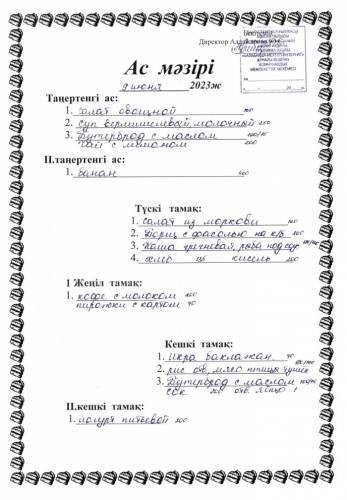 Директор
Ас мәзірі
9 июня 2023ж
Таңертеңгі ас:
1. Салат овощной 100
2. Суп вермишелевый, молочный 250
3. Бутерброд с маслом
Чай с лимоном 200
ІІ.таңертеңгі ас:
1. Банан
Түскі тамақ:
1. Салат из моркови 100
2. Борщ с фасолью на к/б 300
3. Каша гречневая, рыба под соус
4. хлеб кисель 200
І Жеңіл тамақ:
1. кофе с молоком 200
пирожки с картоф 70
Кешкі тамақ:
1. Икра баклажан 70
2. рис отв, мясо птицы тушен
3. Бутерброд с маслом
сок 200 отв. яйцо 1
ІІ.кешкі тамақ:
1. йогурт питьевой 200